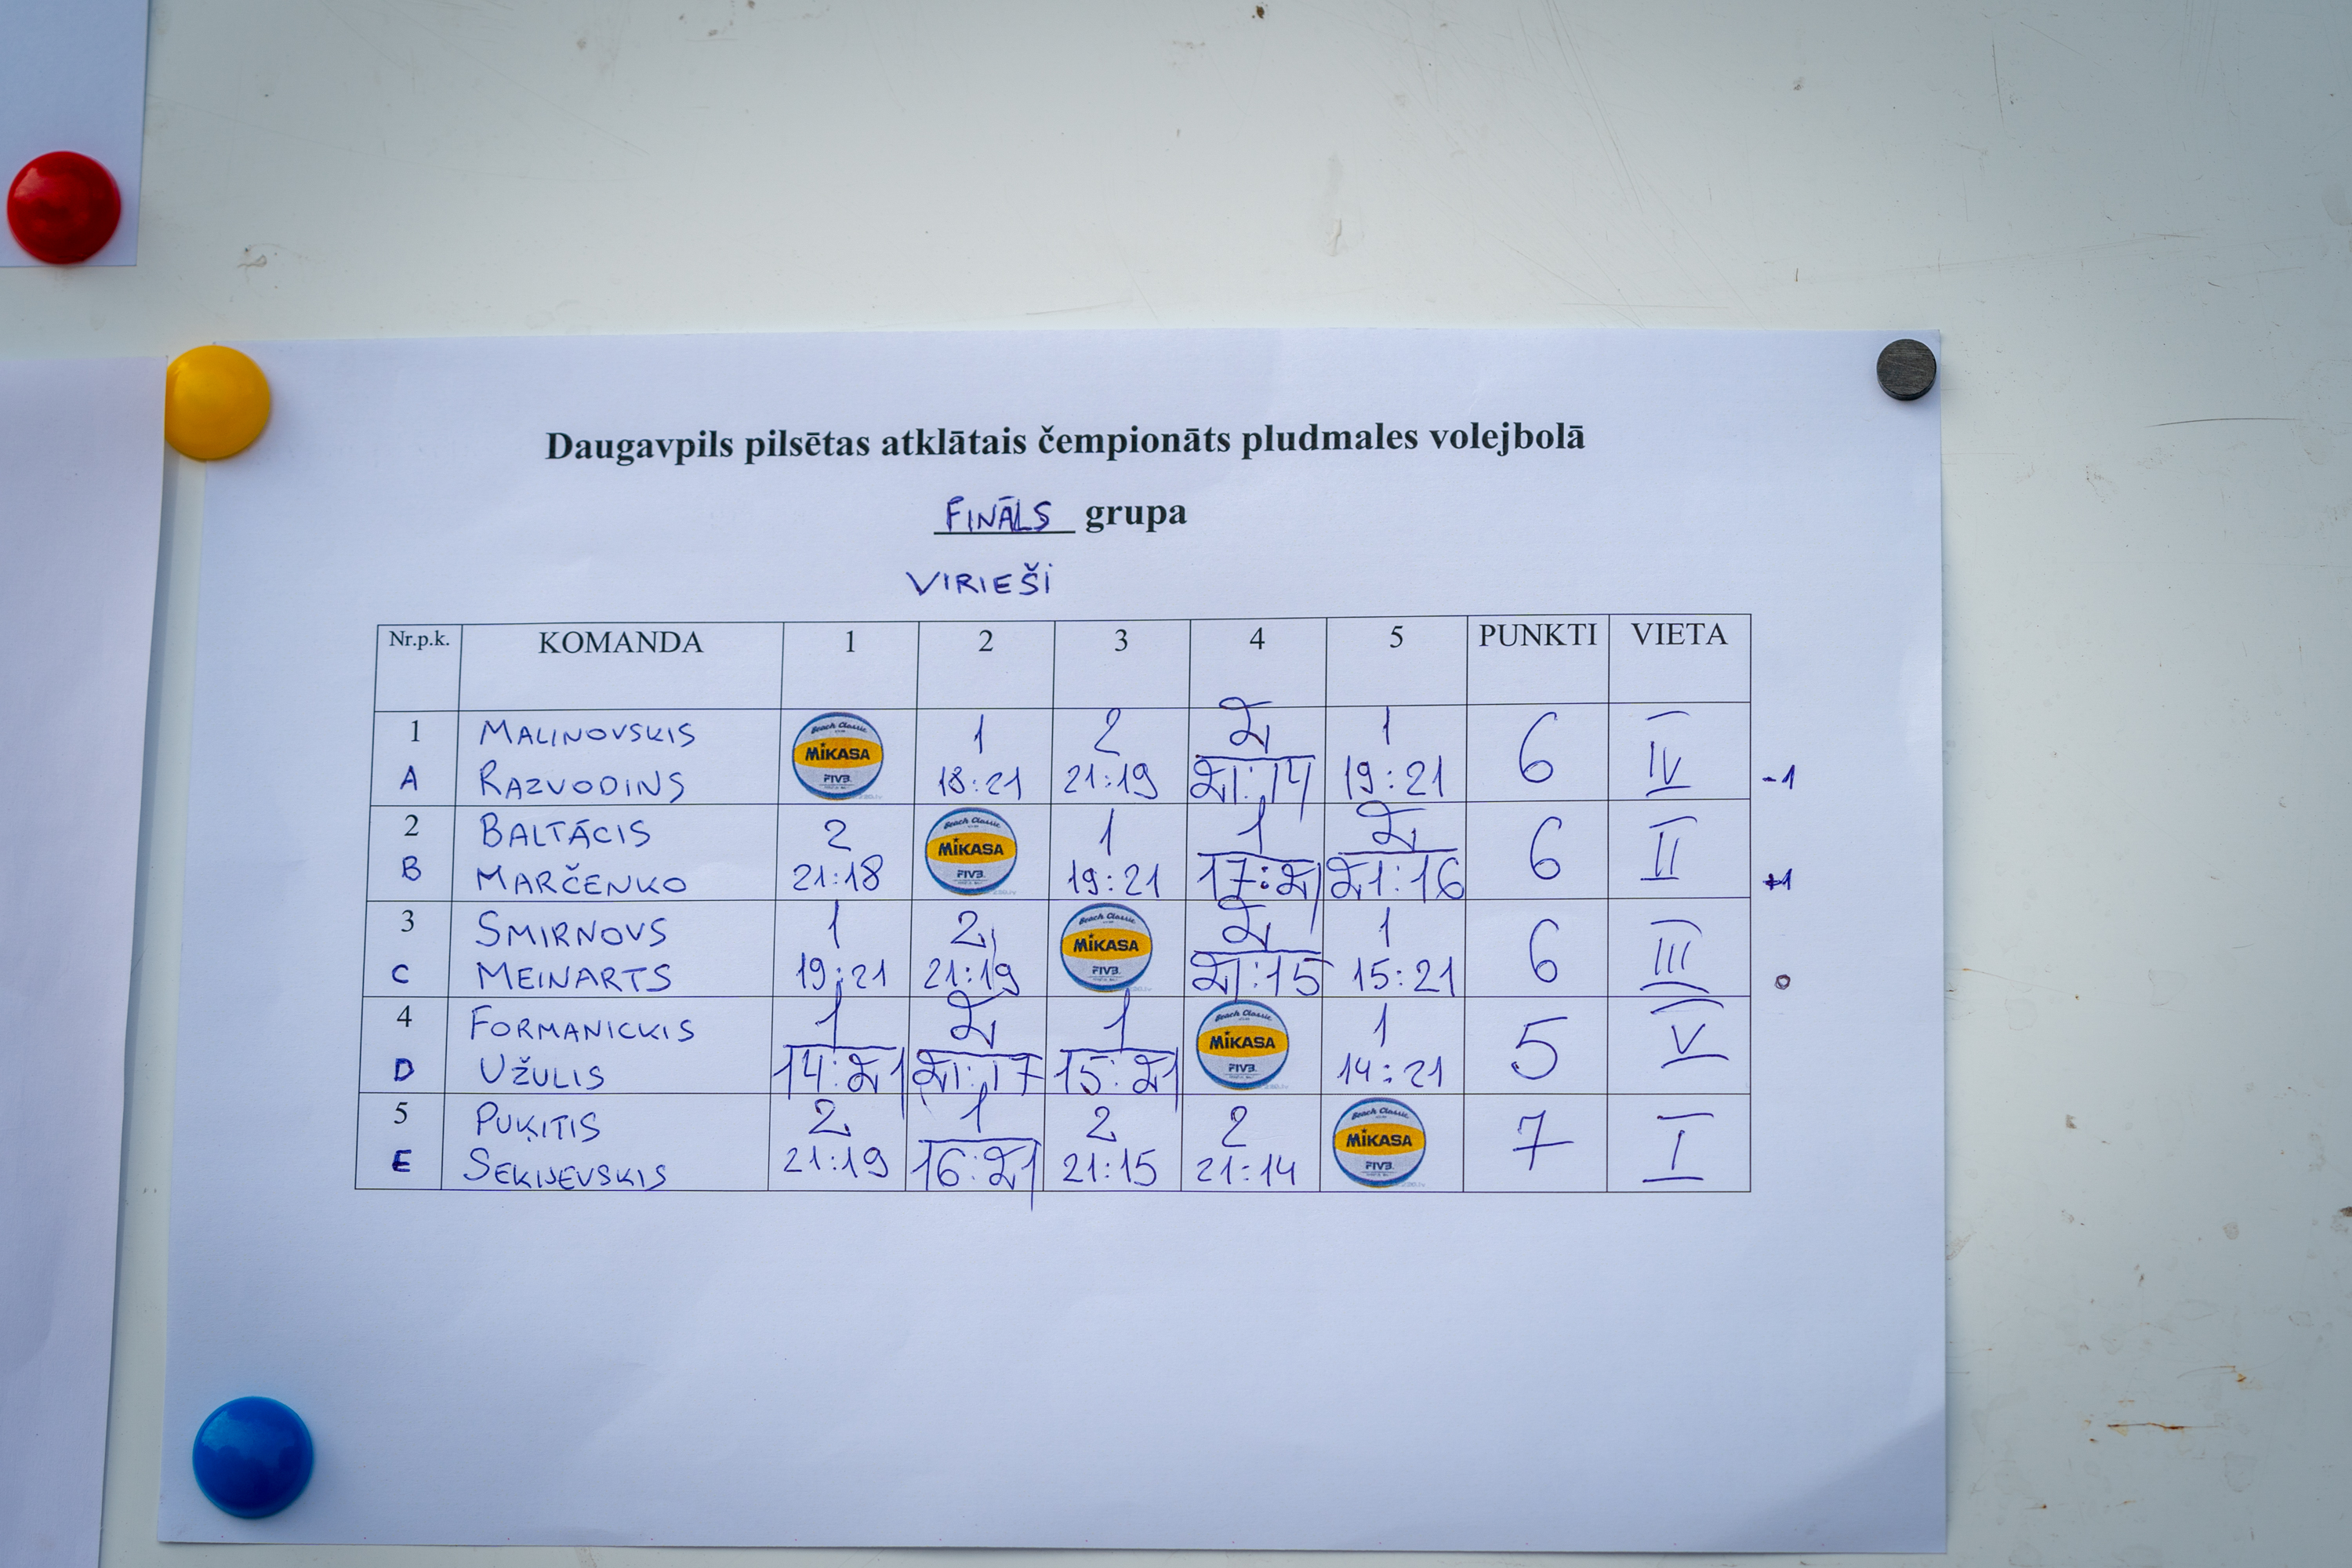 Daugavpils pilsētas atklātais čempionāts pludmales volejbolā
FINĀLS grupa
VIRIEŠI
Nr.p.k. KOMANDA 1 2 3 4 5 PUNKTI VIETA
1 MALINOVSKIS 1 2 2 1 6 IV
A RAZVODINS 18:21 21:19 21:14 19:21 -1
Beach Classic
MIKASA
FIVB
2 BALTĀCIS 2 1 1 2 6 II
B MARČENKO 21:18 19:21 17:21 21:16 +1
Beach Classic
MIKASA
FIVB
3 SMIRNOVS 1 2 2 1 6 III
C MEINARTS 19:21 21:19 21:15 15:21 0
Beach Classic
MIKASA
FIVB
4 FORMANICKIS 1 2 1 1 5 V
D UŽULIS 14:21 21:17 15:21 14:21
Beach Classic
MIKASA
FIVB
5 PUĶITIS 2 1 2 2 7 I
E SEKIJEVSKIS 21:19 16:21 21:15 21:14
Beach Classic
MIKASA
FIVB